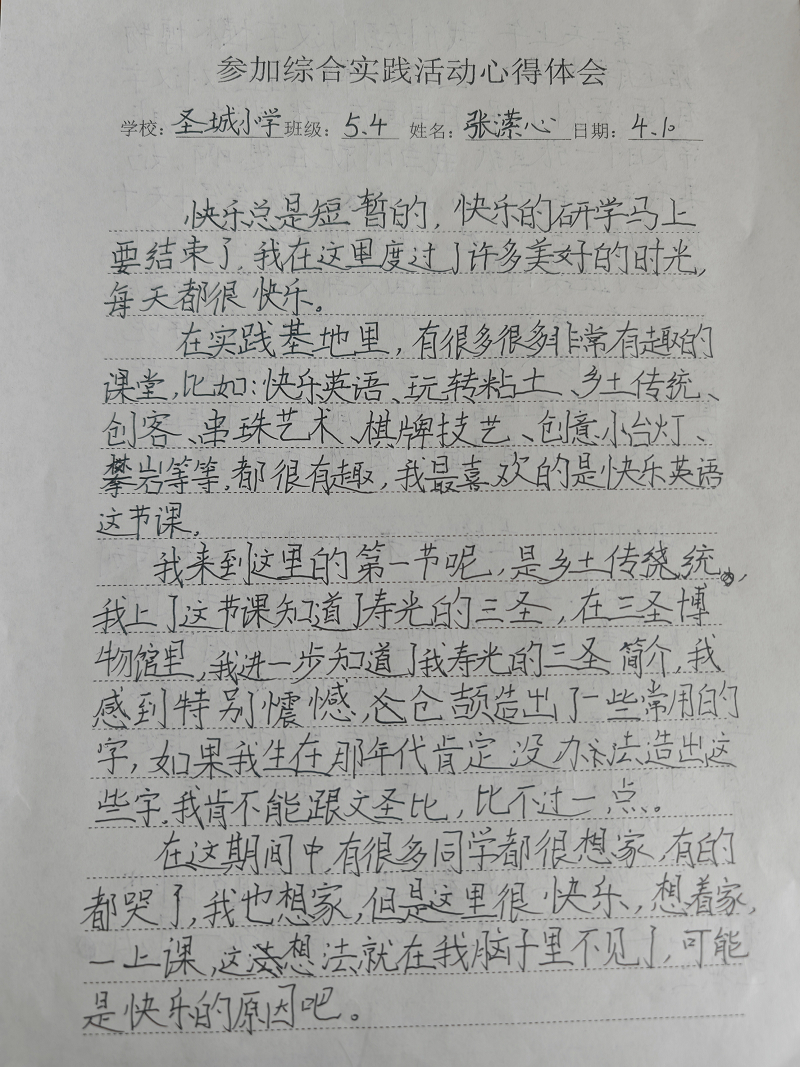 参加综合实践活动心得体会
学校:圣城小学班级:5.4 姓名:张潆心 日期:4.10
快乐总是短暂的,快乐的研学马上
要结束了,我在这里度过了许多美好的时光,
每天都很快乐。
在实践基地里,有很多很多非常有趣的
课堂,比如:快乐英语、玩转粘土、乡土传统、
创客、串珠艺术、棋牌技艺、创意小台灯、
攀岩等等,都很有趣,我最喜欢的是快乐英语
这节课,
我来到这里的第一节呢,是乡土传统,
我上了这节课知道了寿光的三圣,在三圣博
物馆里,我进一步知道了我寿光的三圣简介,我
感到特别憾,仓颉造出了一些常用的
字,如果我生在那年代肯定没办法造出这
些字,我肯不能跟文圣比,比不过一点。
在这期间中,有很多同学都很想家,有的
都哭了,我也想家,但是这里很快乐,想着家,
一上课,这想法就在我脑子里不见了,可能
是快乐的原因吧。